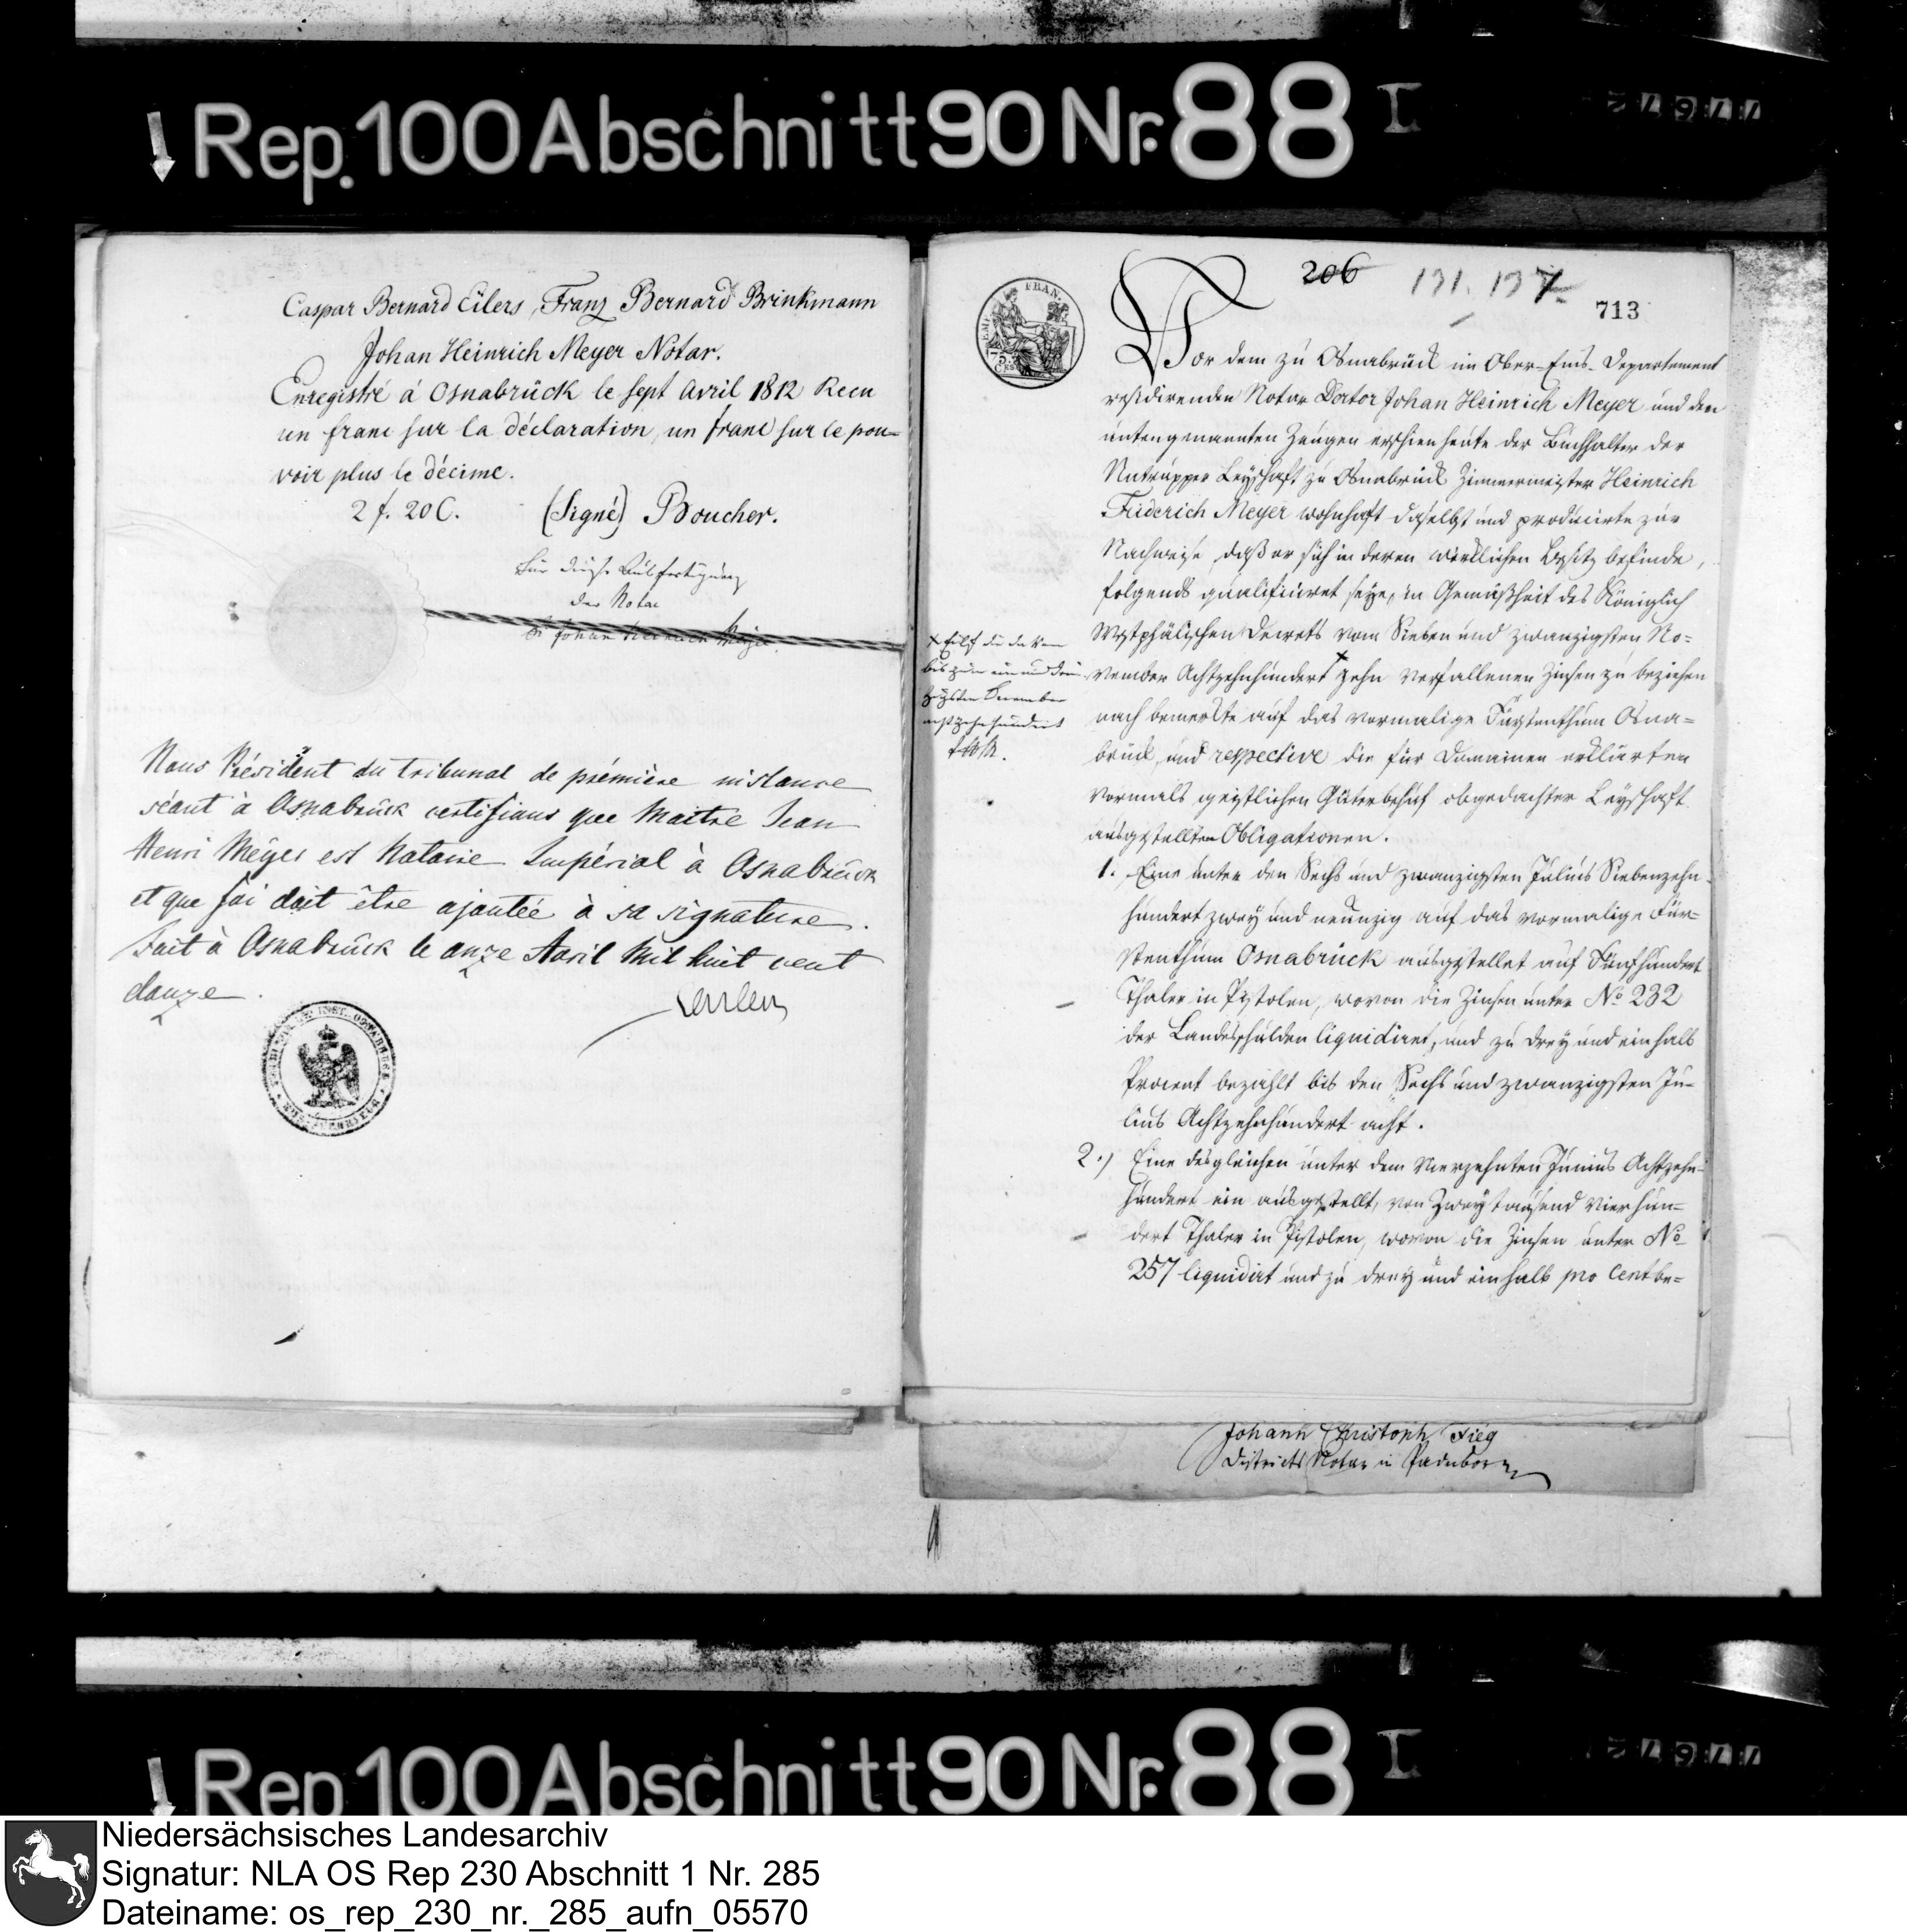 Rep. 100 Abschnitt 90 Nr. 88 I
Caspar Bernard Eilers, Franz Bernard Brinkmann
Johan Heinrich Meyer Notar.
Enregistré à Osnabrück le sept Avril 1812 Recu
un franc sur la déclaration, un franc sur le pou-
voir plus le décime.
2 f. 20 C. (Signé) Boucher.
Für diese Ausfertigung
der Notar
Dr Johan Heinrich Meyer
Nous Président du tribunal de prémière instance
séant à Osnabrück certifions que Maitre Jean
Henri Meyer est Notaire Impérial à Osnabrück
et que foi doit être ajoutée à sa signature.
Fait à Osnabrück le onze Avril Mil huit cent
douze.
206 131. 137.
713
EMP. FRAN.
75. CES
Vor dem zu Osnabrück im Ober-Ems-Departement
residirenden Notar Doctor Johan Heinrich Meyer und den
untengenannten Zeugen erschien heute der Buchhalter der
Natrupper Leyschaft zu Osnabrück Zimmermeister Heinrich
Friderich Meyer wohnhaft daselbst und producirte zur
Nachweise, daß er sich in deren wirklichen Besitz befinde,
folgends qualificiret seye, in Gemäßheit des Königlich
Westphälischen Decrets vom Sieben und zwanzigsten No-
vember Achtzehnhundert x zehn verfallenen Zinsen zu beziehen
x Eilf die da von
bis zum ein und drei
zigsten December
achtzehnhundert
nach bemerkte auf das vormalige Fürstenthum Osna-
brück, und respective die für Domainen erklärten
vormals geistlichen Güter behuf obgedachter Leyschaft
ausgestellten Obligationen.
1. Eine unter den Sechs und zwanzigsten Julius Siebenzehn-
hundert zwey und neunzig auf das vormalige Für-
stenthum Osnabrück ausgestellet auf Fünfhundert
Thaler in Pistolen, wovon die Zinsen unter No 232
der Landesschulden liquidiret, und zu drey und ein halb
Procent bezahlt bis den Sechs und zwanzigsten Ju-
lius Achtzehnhundert acht.
2.) Eine desgleichen unter dem Vierzehnten Junius Achtzehn-
hundert ein ausgestellt, von Zwey tausend Vierhun-
dert Thaler in Pistolen, wovon die Zinsen unter No
257 liquidirt und zu drey und ein halb pro Cent be-
Johann Christoph Fieg
Districts Notar in Paderborn
Rep. 100 Abschnitt 90 Nr. 88 I
Niedersächsisches Landesarchiv
Signatur: NLA OS Rep 230 Abschnitt 1 Nr. 285
Dateiname: os_rep_230_nr._285_aufn_05570